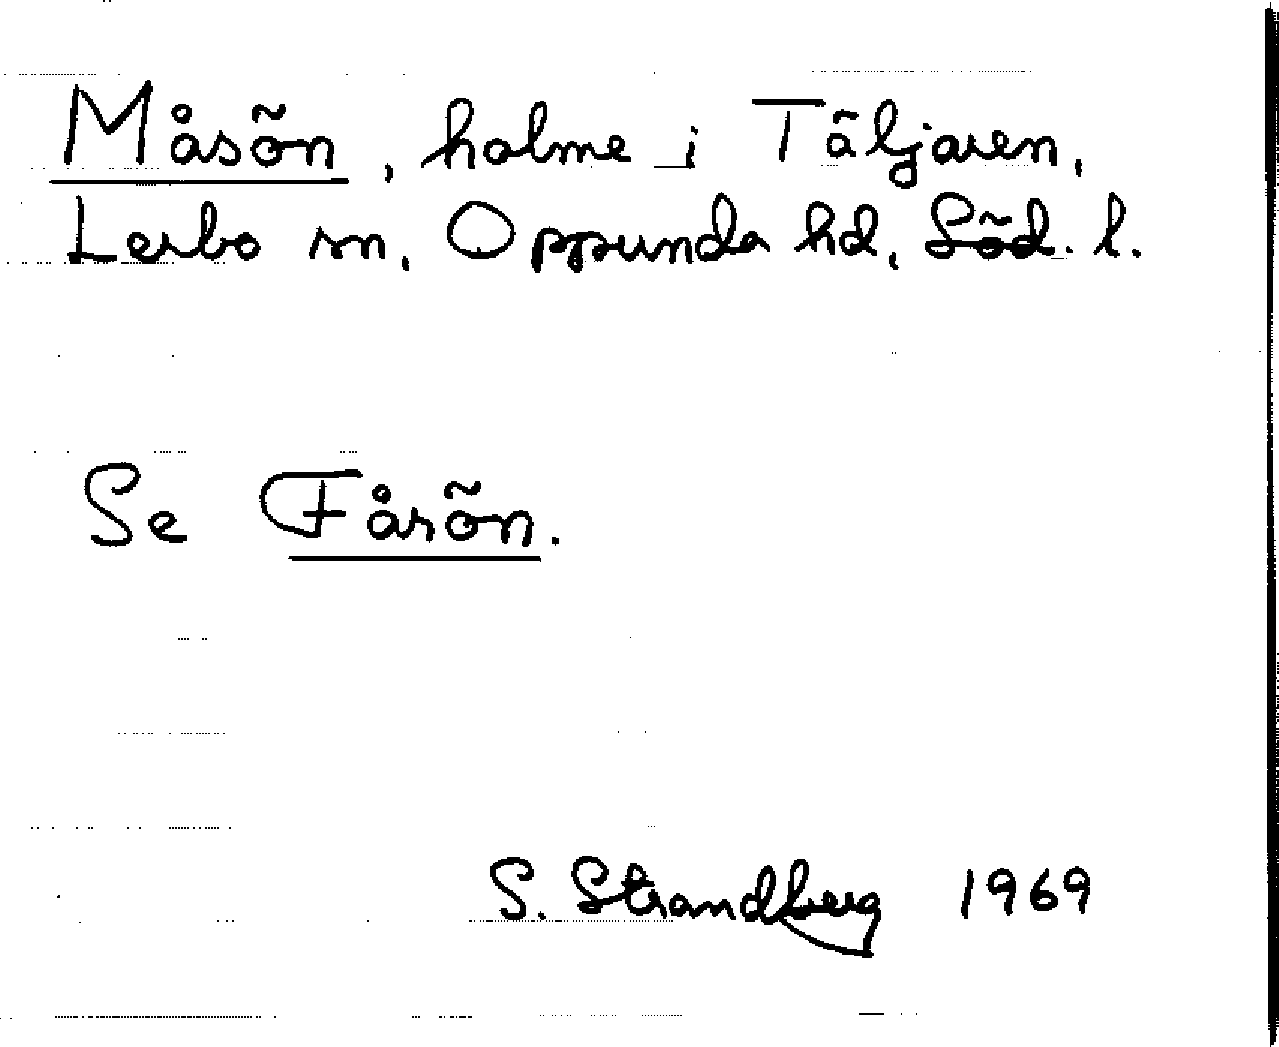 Måsön, holme i Täljaren,
Lerbo sn, Oppunda hd, Söd. l.
Se Fårön.
S. Strandberg 1969